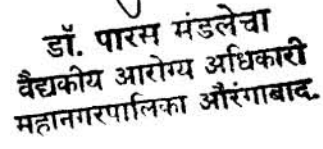 डॉ. पारस मंडलेचा
वैद्यकीय आरोग्य अधिकारी
महानगरपालिका औरंगाबाद.